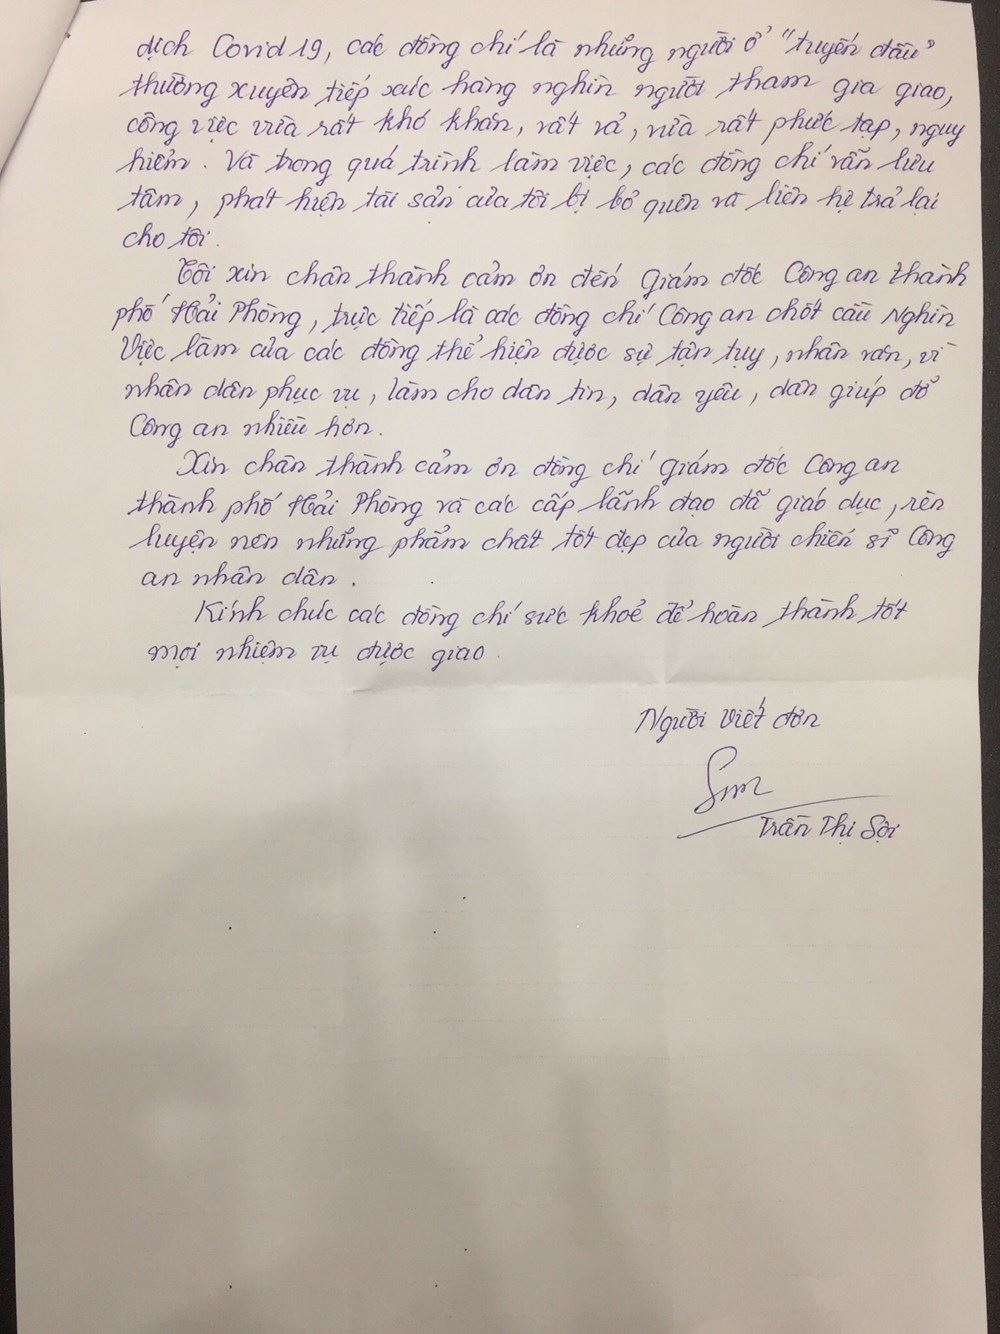 dịch Covid 19, các đồng chí là những người ở "tuyến đầu"
thường xuyên tiếp xúc hàng nghìn người tham gia giao,
công việc vừa rất khó khăn, vất vả, vừa rất phức tạp, nguy
hiểm. Và trong quá trình làm việc, các đồng chí vẫn lưu
tâm, phát hiện tài sản của tôi bị bỏ quên và liên hệ trả lại
cho tôi.
Tôi xin chân thành cảm ơn đến Giám đốc Công an thành
phố Hải Phòng, trực tiếp là các đồng chí Công an chốt cầu Nghìn
Việc làm của các đồng thể hiện được sự tận tụy, nhân văn, vì
nhân dân phục vụ, làm cho dân tin, dân yêu, dân giúp đỡ
Công an nhiều hơn.
Xin chân thành cảm ơn đồng chí Giám đốc Công an
thành phố Hải Phòng và các cấp lãnh đạo đã giáo dục, rèn
luyện nên những phẩm chất tốt đẹp của người chiến sĩ Công
an nhân dân.
Kính chúc các đồng chí sức khoẻ để hoàn thành tốt
mọi nhiệm vụ được giao.
Người viết đơn
Trần Thị Sợi